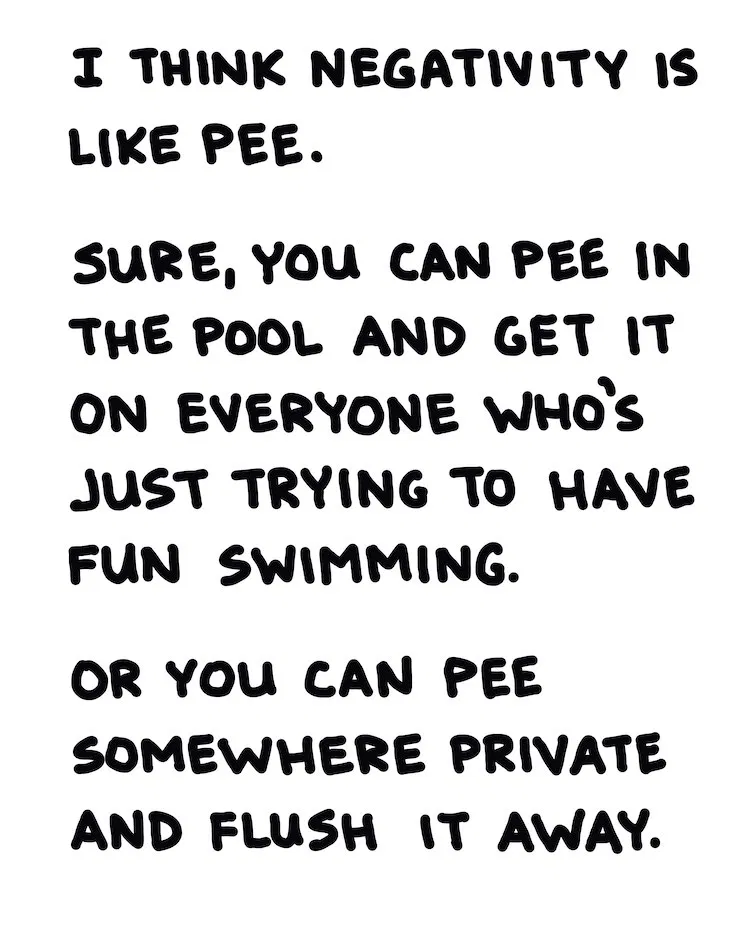 I THINK NEGATIVITY IS
LIKE PEE.
SURE, YOU CAN PEE IN
THE POOL AND GET IT
ON EVERYONE WHO'S
JUST TRYING TO HAVE
FUN SWIMMING.
OR YOU CAN PEE
SOMEWHERE PRIVATE
AND FLUSH IT AWAY.